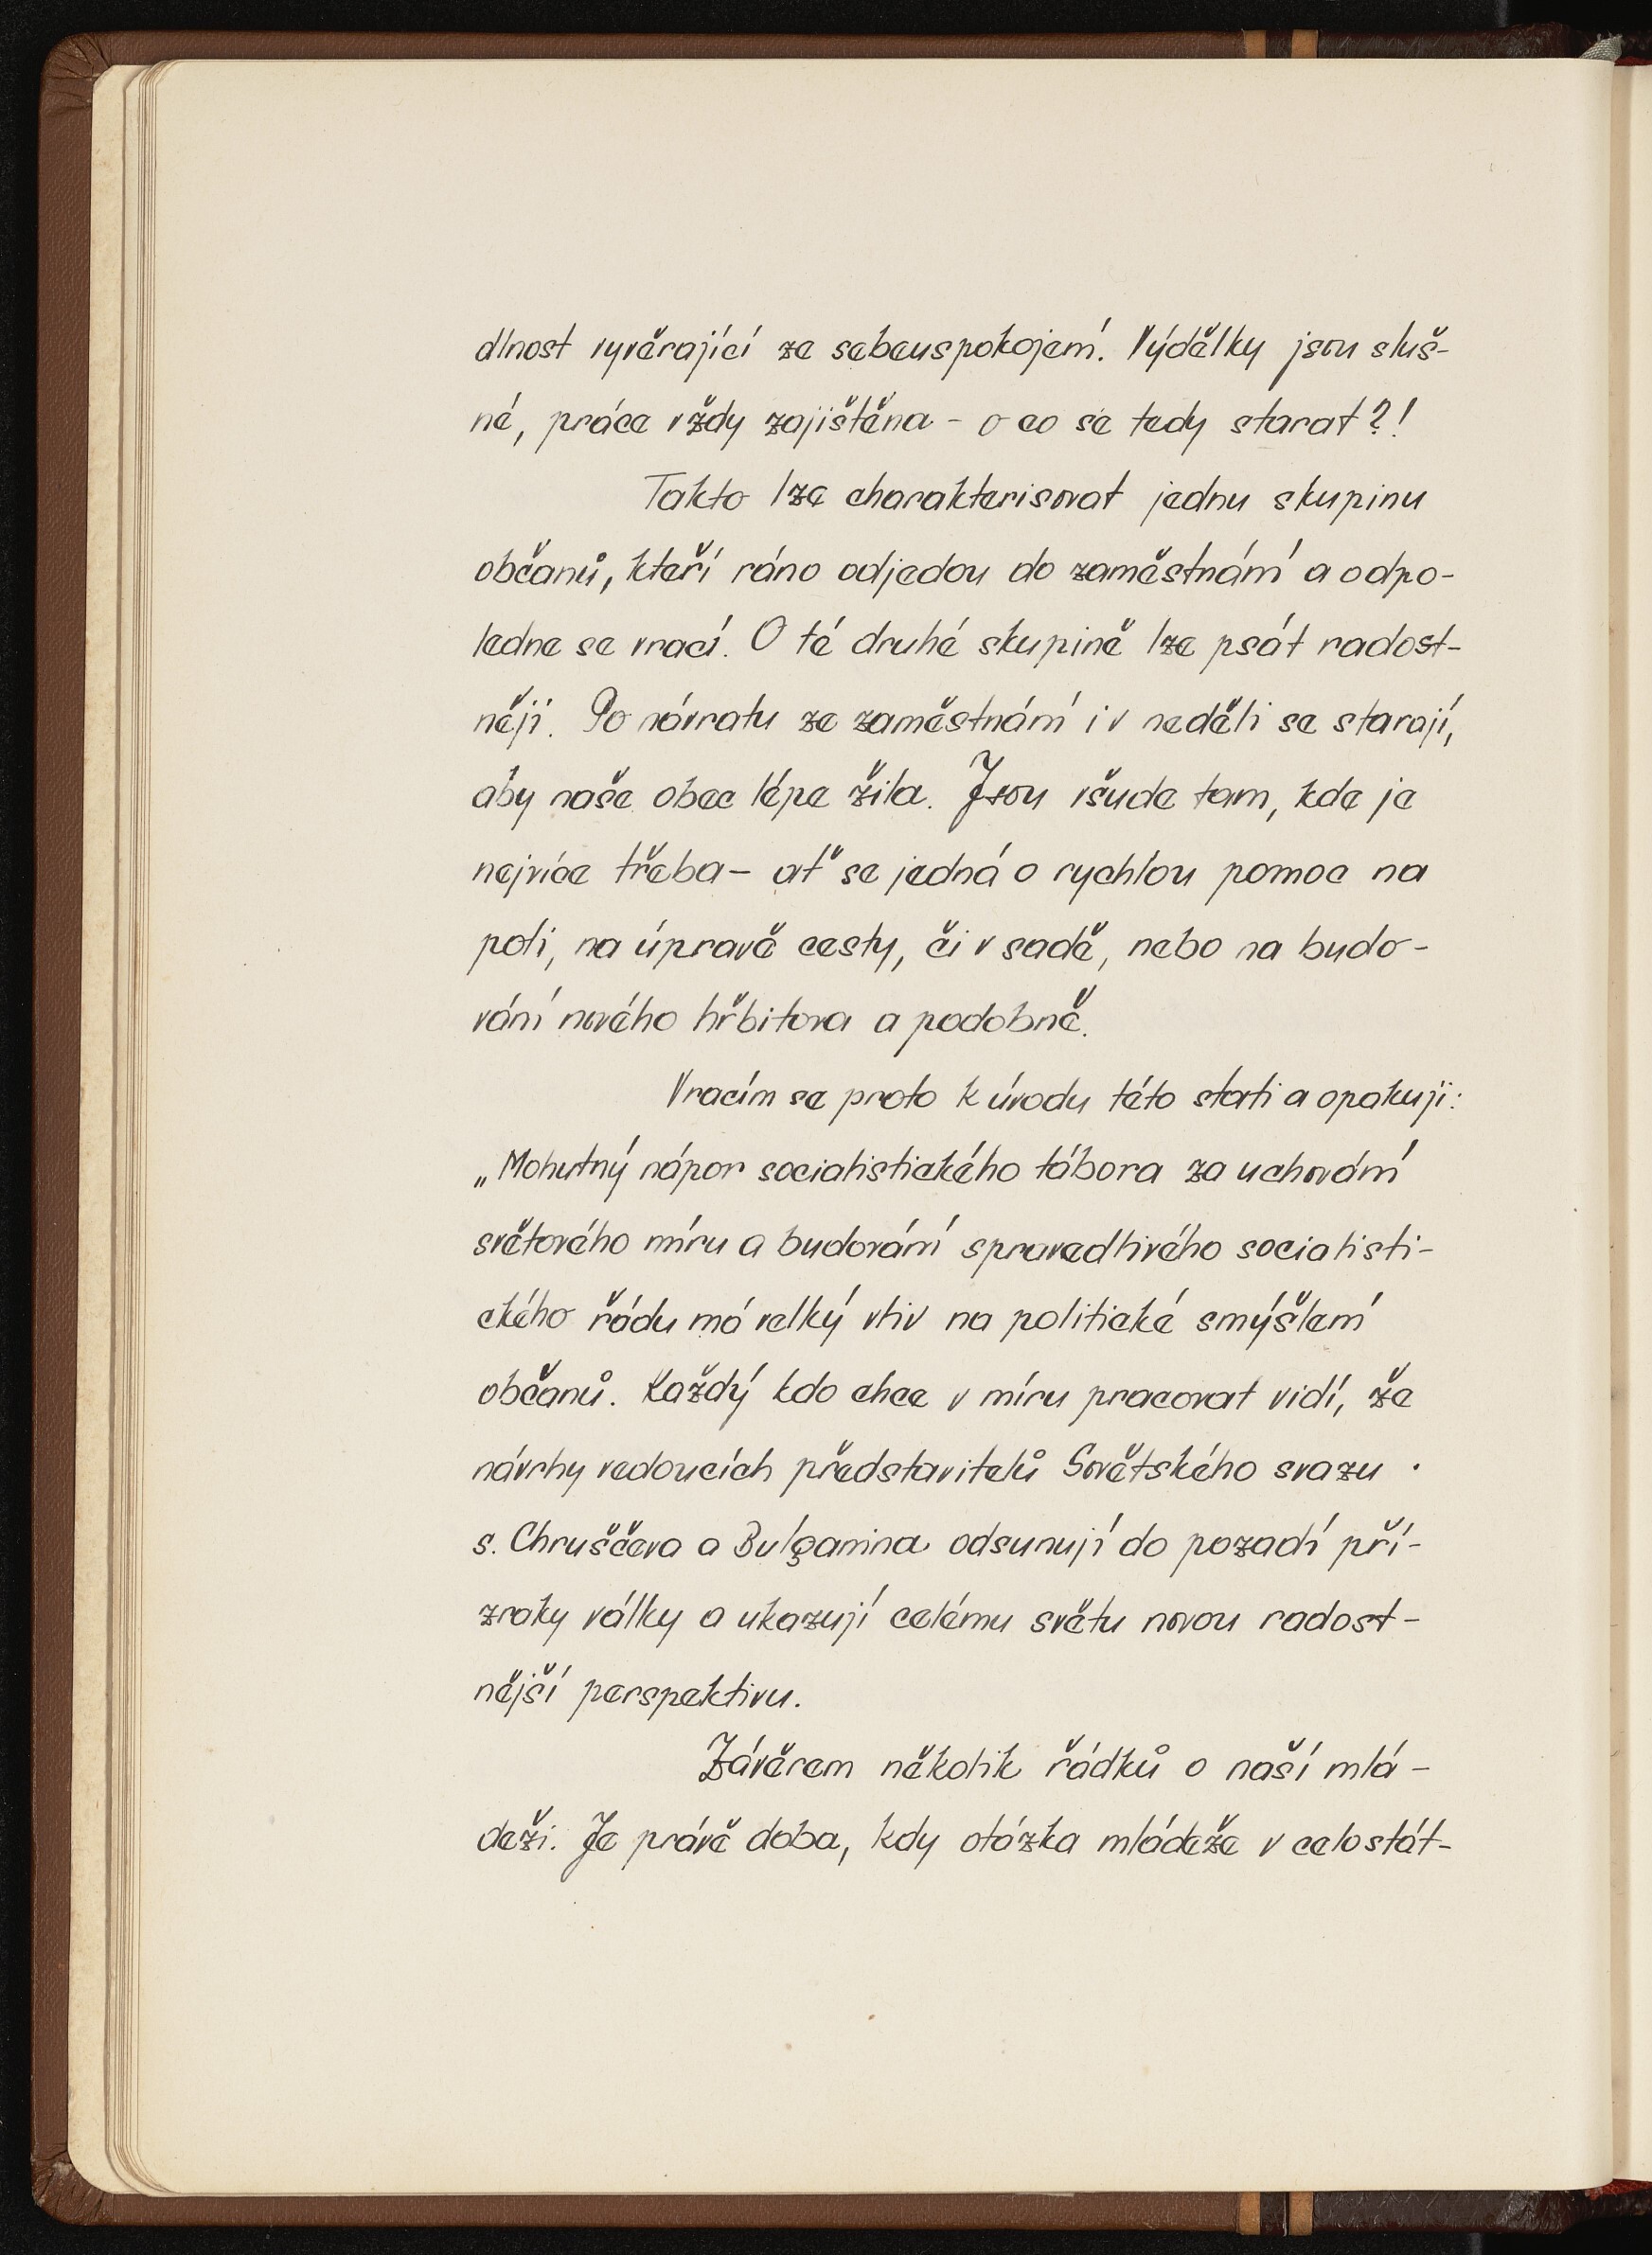 dlnost vyvěrající ze sebeuspokojení. Výdělky jsou sluš-
né, práce vždy zajištěna - o co se tedy starat?!
Takto lze charakterisovat jednu skupinu
občanů, kteří ráno odjedou do zaměstnání a odpo-
ledne se vrací. O té druhé skupině lze psát radost-
něji. Po návratu ze zaměstnání i v neděli se starají,
aby naše obec lépe žila. Jsou všude tam, kde je
nejvíce třeba - ať se jedná o rychlou pomoc na
poli, na úpravě cesty, či v sadě, nebo na budo-
vání nového hřbitova a podobně.
Vracím se proto k úvodu této stati a opakuji:
„Mohutný nápor socialistického tábora za uchování
světového míru a budování spravedlivého socialisti-
ckého řádu má velký vliv na politické smýšlení
občanů. Každý kdo chce v míru pracovat vidí, že
návrhy vedoucích představitelů Sovětského svazu
s. Chruščeva a Bulganina odsunují do pozadí pří-
zraky války a ukazují celému světu novou radost-
nější perspektivu.
Závěrem několik řádků o naší mlá-
deži. Je právě doba, kdy otázka mládeže v celostát-